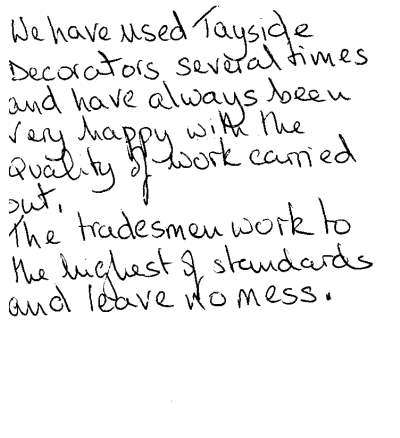 We have used Tayside
Decorators several times
and have always been
very happy with the
quality of work carried
out.
The tradesmen work to
the highest of standards
and leave no mess.